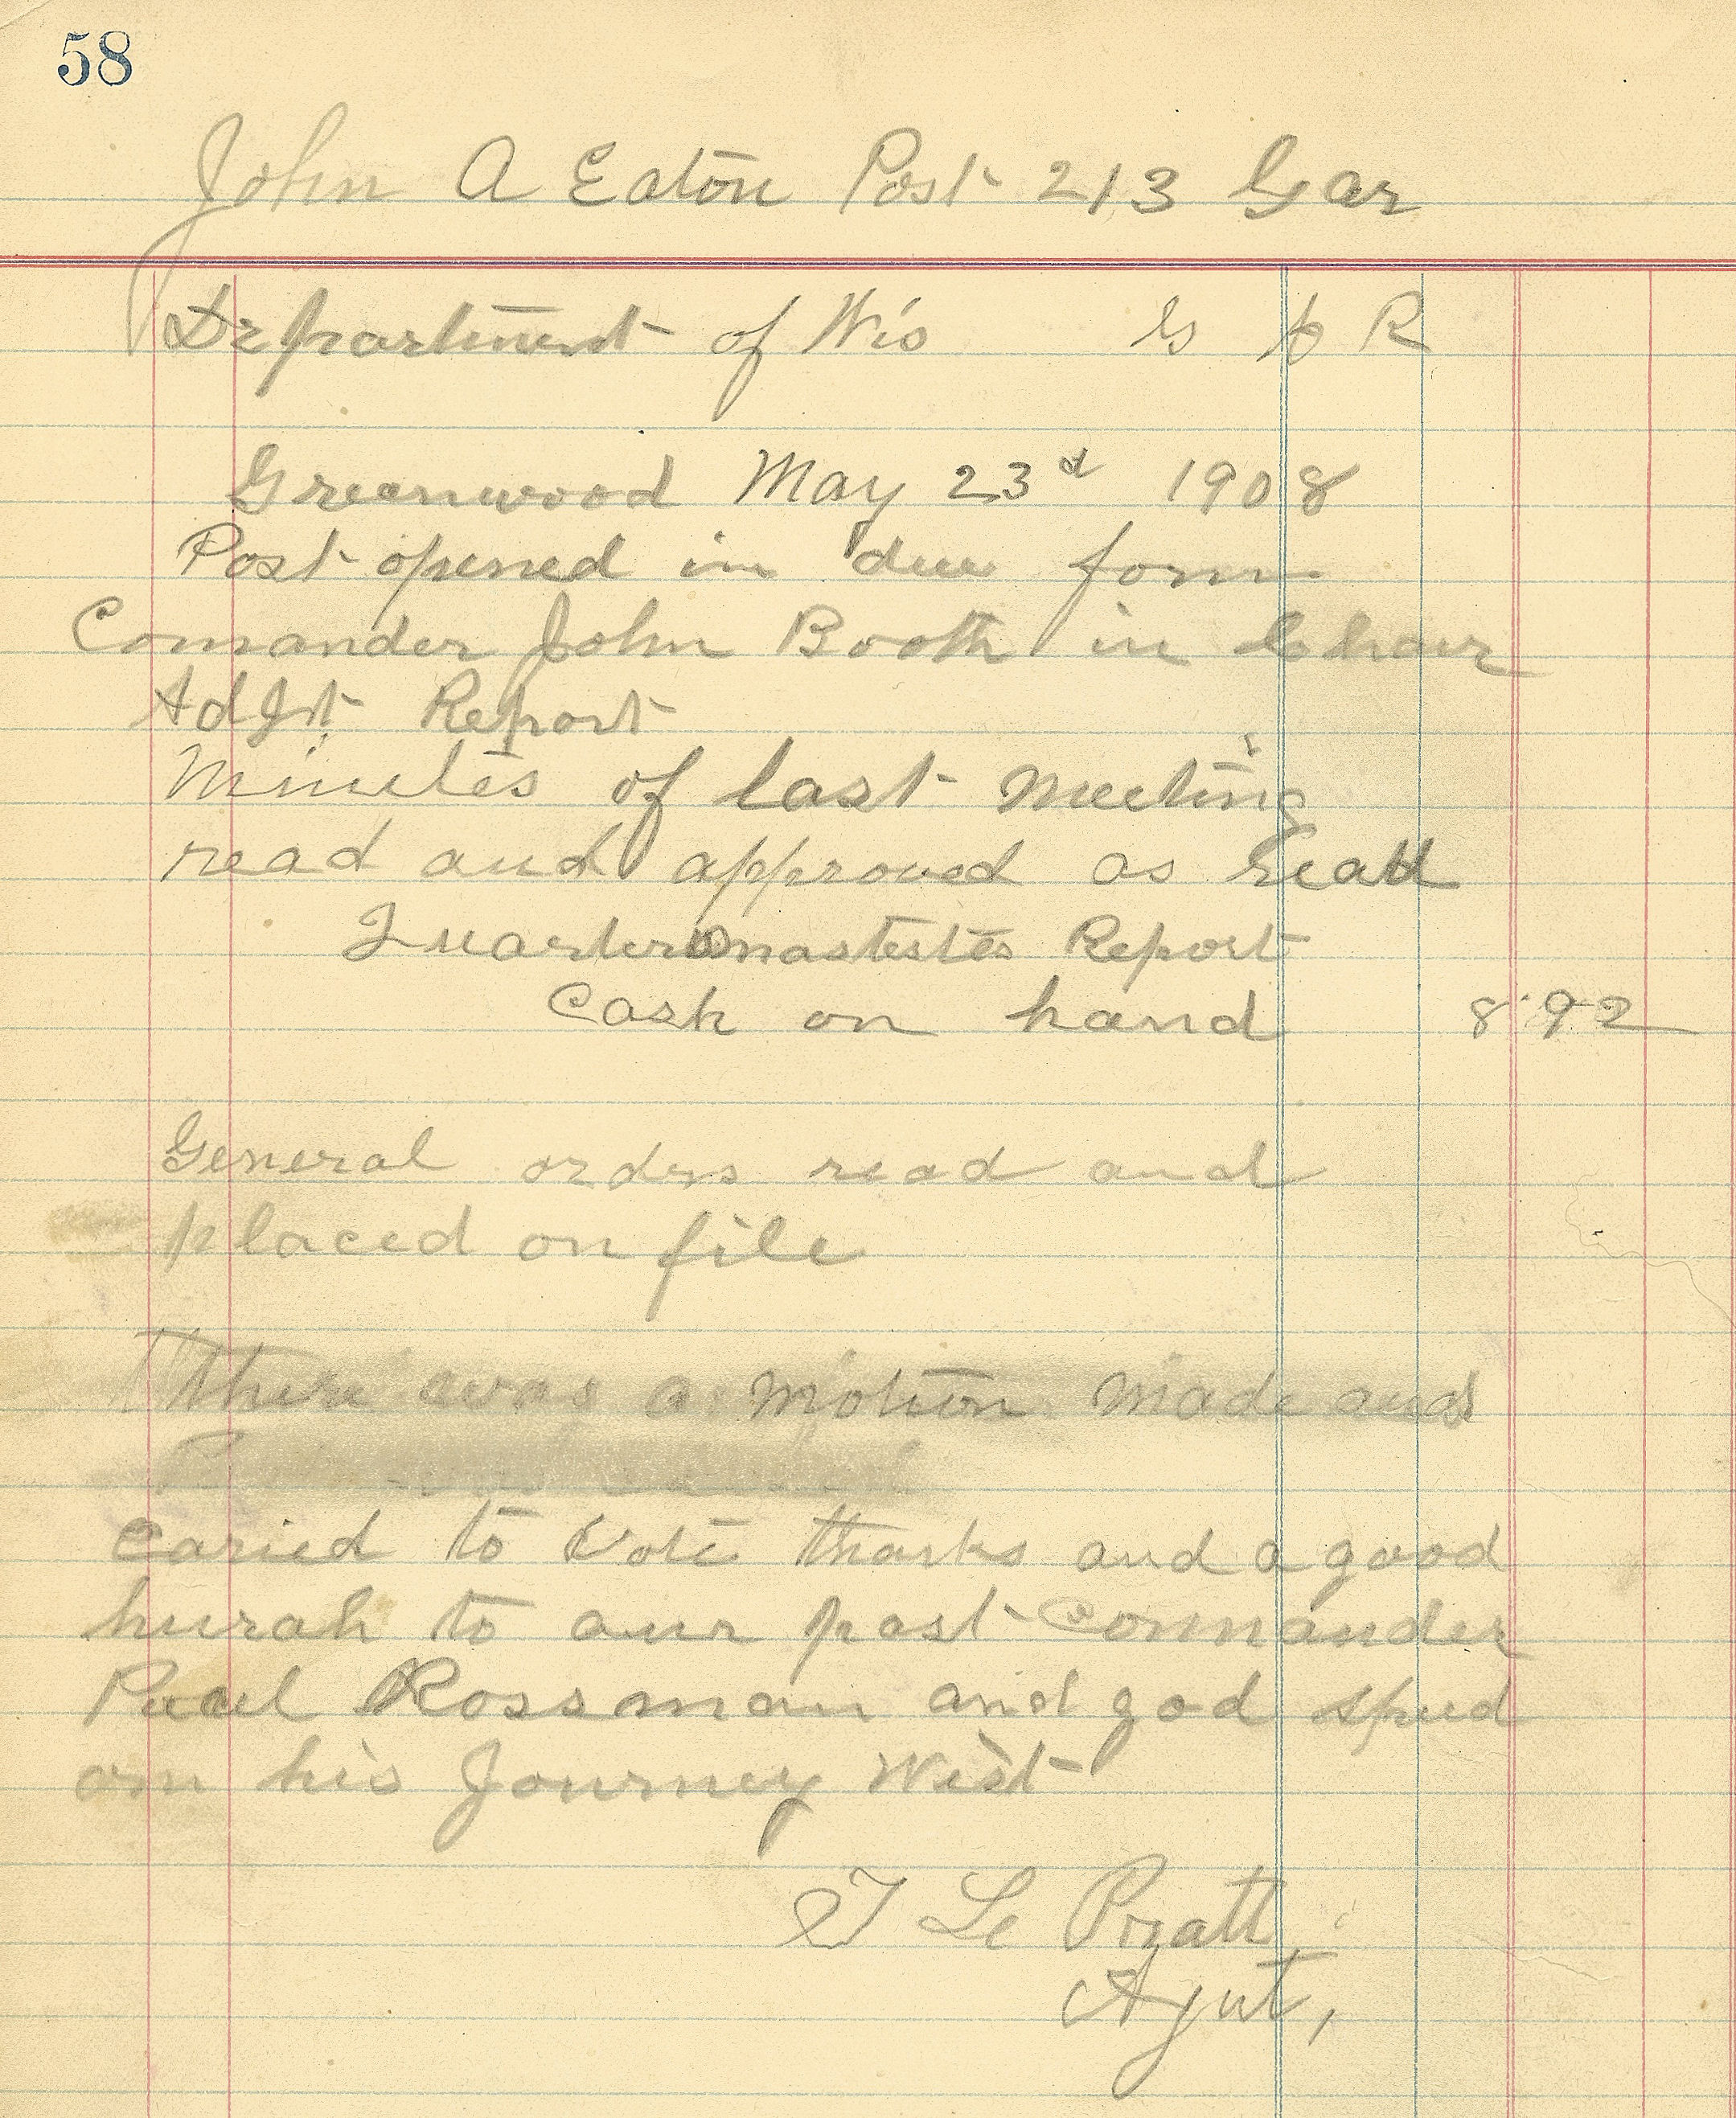 58
John A Eaton Post 213 Gar
Department of Wis G A R
Greenwood May 23d 1908
Post opened in due form
Comander John Booth in Chair
AdJt Report
Minutes of last meeting
read and approved as read
Quartermastestes Report
Cash on hand 8 92
General orders read and
placed on file
There was a motion made and
caried to Vote thanks and a good
hurah to our past Commander
Paul Rossman and god speed
on his Journey West
Le Pratt
Ajut,